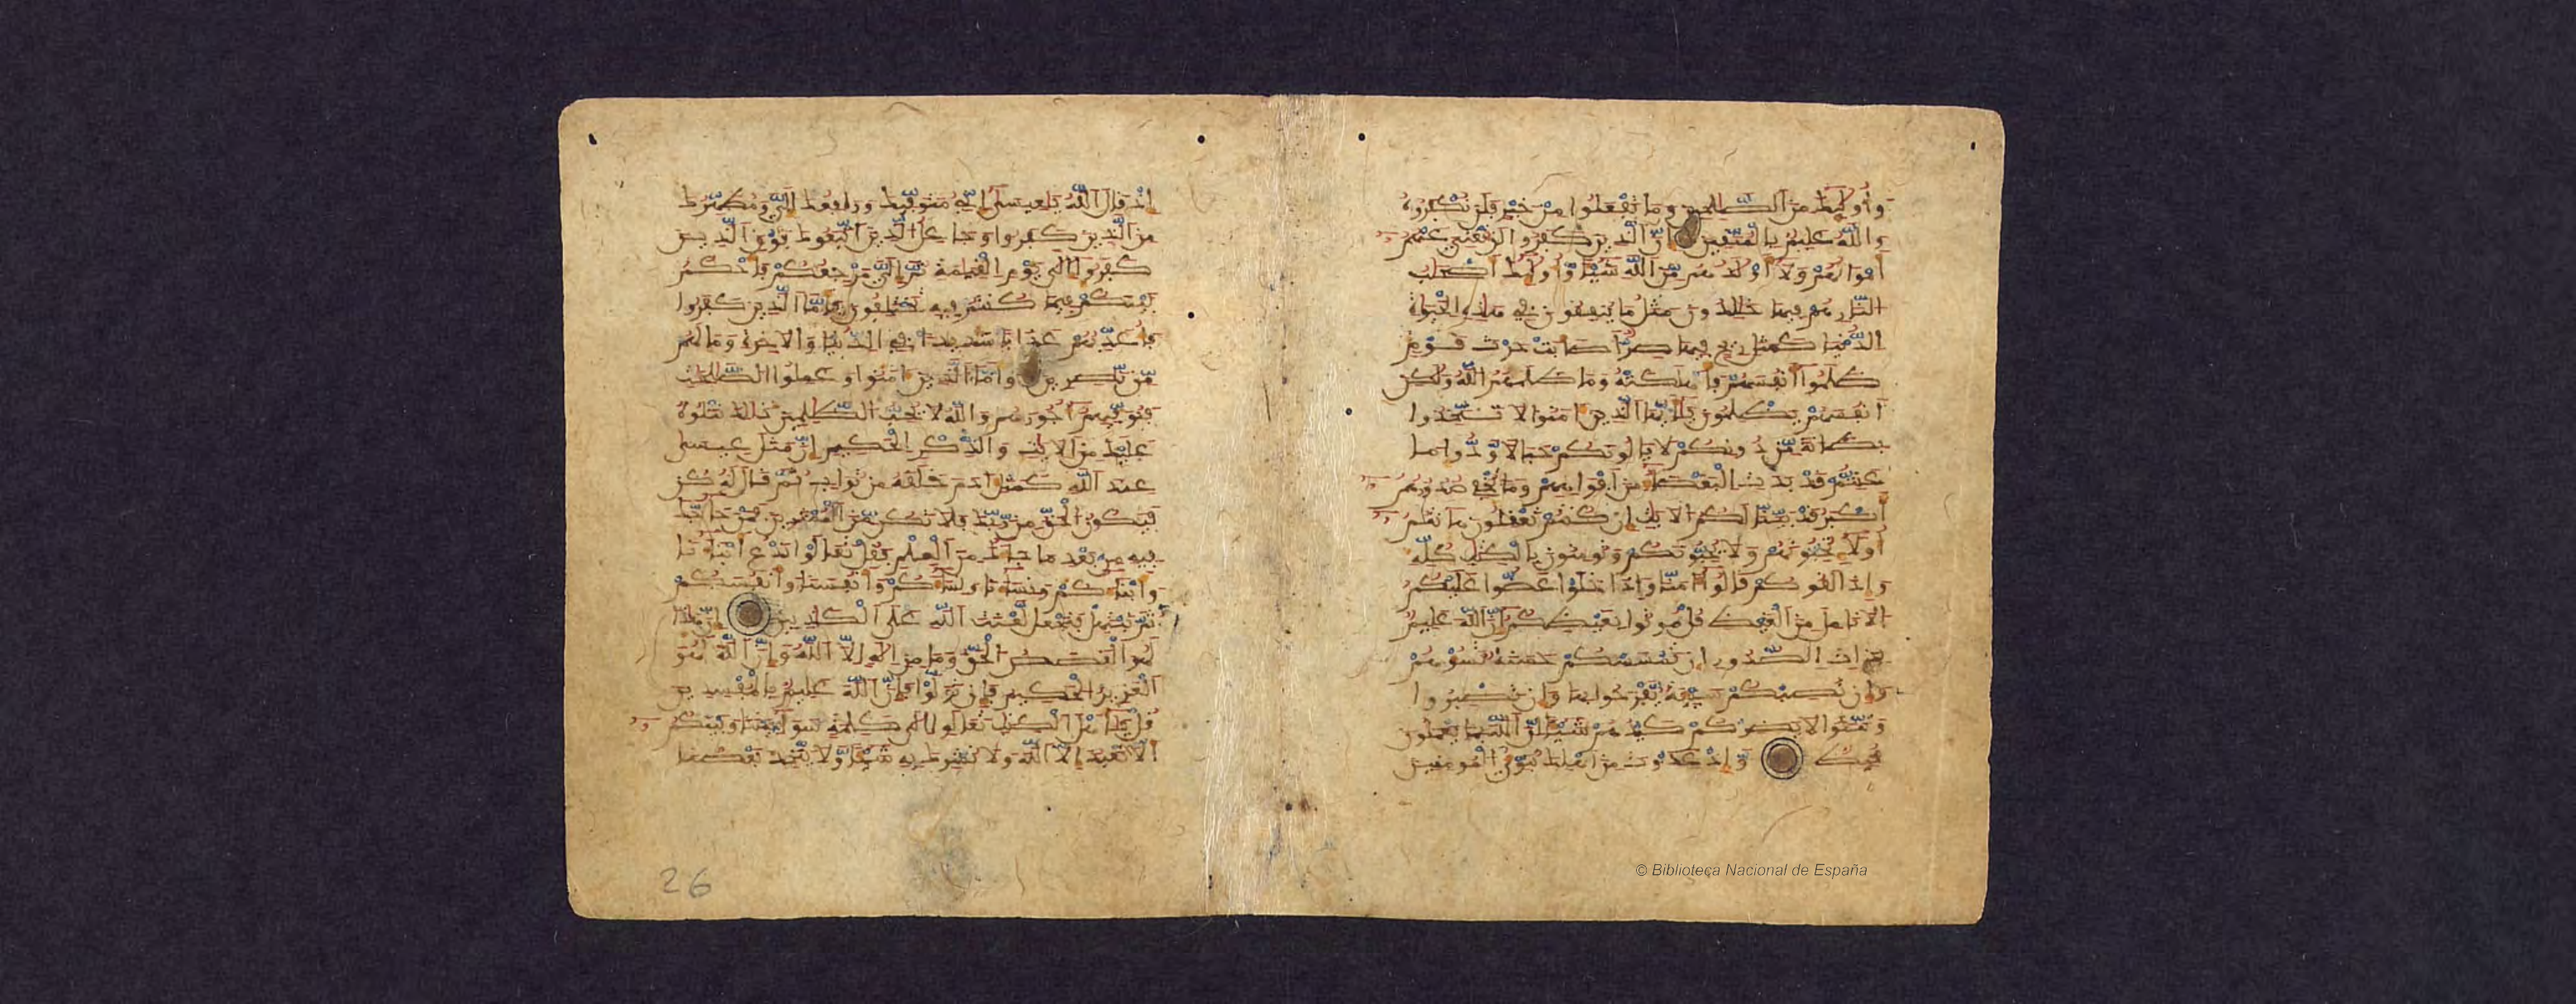 وأوليك من الصلحين وما تفعلوا من خير فلن تكفروه
والله عليم بالمتقين إن الذين كفروا لن تغني عنهم
أموالهم ولا أولدهم من الله شيئا وأوليك أصحب
النار هم فيها خلدون مثل ما ينفقون في هذه الحيوة
الدنيا كمثل ريح فيها صر أصابت حرث قوم
ظلموا أنفسهم فأهلكته وما ظلمهم الله ولكن
أنفسهم يظلمون يأيها الذين ءامنوا لا تتخذوا
بطانة من دونكم لا يالونكم خبالا ودوا ما
عنتم قد بدت البغضاء من أفوههم وما تخفي صدورهم
أكبر قد بينا لكم الايت إن كنتم تعقلون هانتم
أولاء تحبونهم ولا يحبونكم وتومنون بالكتب كله
وإذا لقوكم قالوا ءامنا وإذا خلوا عضوا عليكم
الانامل من الغيظ قل موتوا بغيظكم إن الله عليم
بذات الصدور إن تمسسكم حسنة تسؤهم
وإن تصبكم سيئة يفرحوا بها وإن تصبروا
وتتقوا لا يضركم كيدهم شيئا إن الله بما يعملون
محيط وإذ غدوت من أهلك تبوئ المومنين
إذ قال الله يعيسى إني متوفيك ورافعك إلي ومطهرك
من الذين كفروا وجاعل الذين اتبعوك فوق الذين
كفروا إلى يوم القيمة ثم إلي مرجعكم فأحكم
بينكم فيما كنتم فيه تختلفون فأما الذين كفروا
فأعذبهم عذابا شديدا في الدنيا والاخرة وما لهم
من نصرين وأما الذين ءامنوا وعملوا الصلحت
فنوفيهم أجورهم والله لا يحب الظلمين ذلك نتلوه
عليك من الايت والذكر الحكيم إن مثل عيسى
عند الله كمثل ءادم خلقه من تراب ثم قال له كن
فيكون الحق من ربك فلا تكن من الممترين فمن حاجك
فيه من بعد ما جاءك من العلم فقل تعالوا ندع أبناءنا
وأبناءكم ونساءنا ونساءكم وأنفسنا وأنفسكم
ثم نبتهل فنجعل لعنت الله على الكذبين إن هذا
لهو القصص الحق وما من إله إلا الله وإن الله لهو
العزيز الحكيم فإن تولوا فإن الله عليم بالمفسدين
قل يأهل الكتب تعالوا إلى كلمة سواء بيننا وبينكم
ألا نعبد إلا الله ولا نشرك به شيئا ولا يتخذ بعضنا
26
© Biblioteca Nacional de España